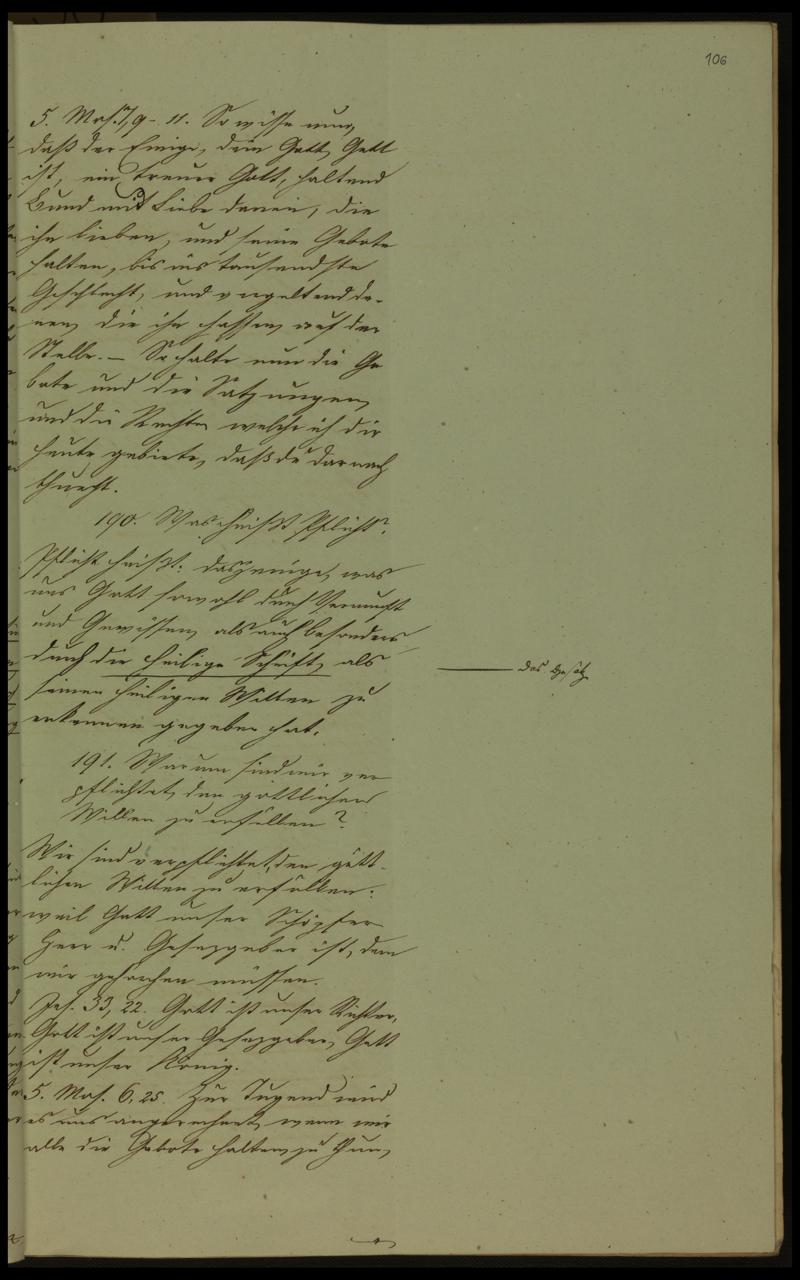 106
5. Mos. 7, 9-11. So wisse nun,
daß der Einige, dein Gott, Gott
ist, ein treuer Gott, haltend
Bund mit Liebe denen, die
ihn lieben, und seine Gebote
halten, bis ins tausendste
Geschlecht, und vergeltend de-
nen, die ihn hassen, auf der
Stelle. — So halte nun die Ge
bote und die Satzungen,
und die Rechte, welche ich dir
heute gebiete, daß du darnach
thuest.
190. Was heißt Pflicht?
Pflicht heißt: dasjenige, was
uns Gott sowohl durch Vernunft
und Gewissen, als auch besonders
durch die heilige Schrift, als
das Gesetz
seinen heiligen Willen zu
erkennen gegeben hat.
191. Warum sind wir ver
pflichtet, den göttlichen
Willen zu erfüllen?
Wir sind verpflichtet, den gött-
lichen Willen zu erfüllen:
weil Gott unser Schöpfer
Herr u. Gesezgeber ist, dem
wir gehorchen müssen.
Jes. 33, 22. Gott ist unser Richter,
Gott ist unser Gesezgeber, Gott
ist unser König.
5. Mos. 6, 25. Zur Tugend wird
es uns angerechnet, wenn wir
alle die Gebote halten, zu thun,